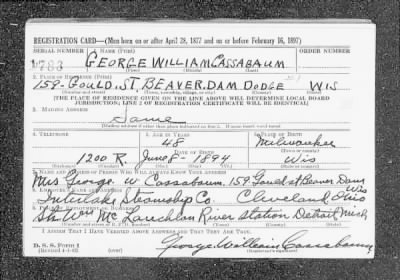 REGISTRATION CARD—(Men born on or after April 28, 1877 and on or before February 16, 1897)
SERIAL NUMBER 1. NAME (Print) ORDER NUMBER
U 783 GEORGE WILLIAM CASSABAUM
(First) (Middle) (Last)
2. PLACE OF RESIDENCE (Print)
159-GOULD.ST. BEAVER.DAM DODGE WIS
(Number and street) (Town, township, village, or city) (County) (State)
[THE PLACE OF RESIDENCE GIVEN ON THE LINE ABOVE WILL DETERMINE LOCAL BOARD
JURISDICTION; LINE 2 OF REGISTRATION CERTIFICATE WILL BE IDENTICAL]
3. MAILING ADDRESS
Same
[Mailing address if other than place indicated on line 2. If same insert word same]
4. TELEPHONE 5. AGE IN YEARS 6. PLACE OF BIRTH
48 Milwaukee
DATE OF BIRTH (Town or county)
1200 R. June 8- 1894 Wis
(Exchange) (Number) (Mo.) (Day) (Yr.) (State or country)
7. NAME AND ADDRESS OF PERSON WHO WILL ALWAYS KNOW YOUR ADDRESS
Mrs George. W Cassabaum. 159 Gould st Beaver Dam Wis
8. EMPLOYER'S NAME AND ADDRESS
Interlake Steamship Co. Cleveland Ohio
9. PLACE OF EMPLOYMENT OR BUSINESS
Str. Wm. McLauchlan River Station Detroit Mich
I AFFIRM THAT I HAVE VERIFIED ABOVE ANSWERS AND THAT THEY ARE TRUE.
D. S. S. Form 1
(Revised 4-1-42) George William Cassabaum